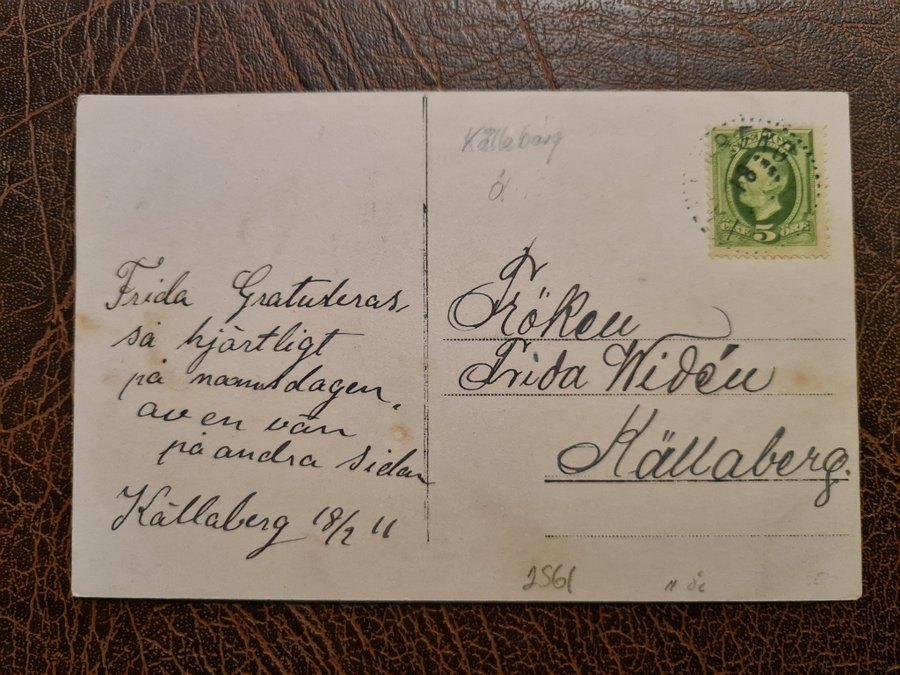 Frida Gratuleras
så hjärtligt
på namnsdagen
av en vän
på andra sidan
Källaberg 18/2 11
Källaberg
Fröken
Frida Widén
Källaberg.
5
2561